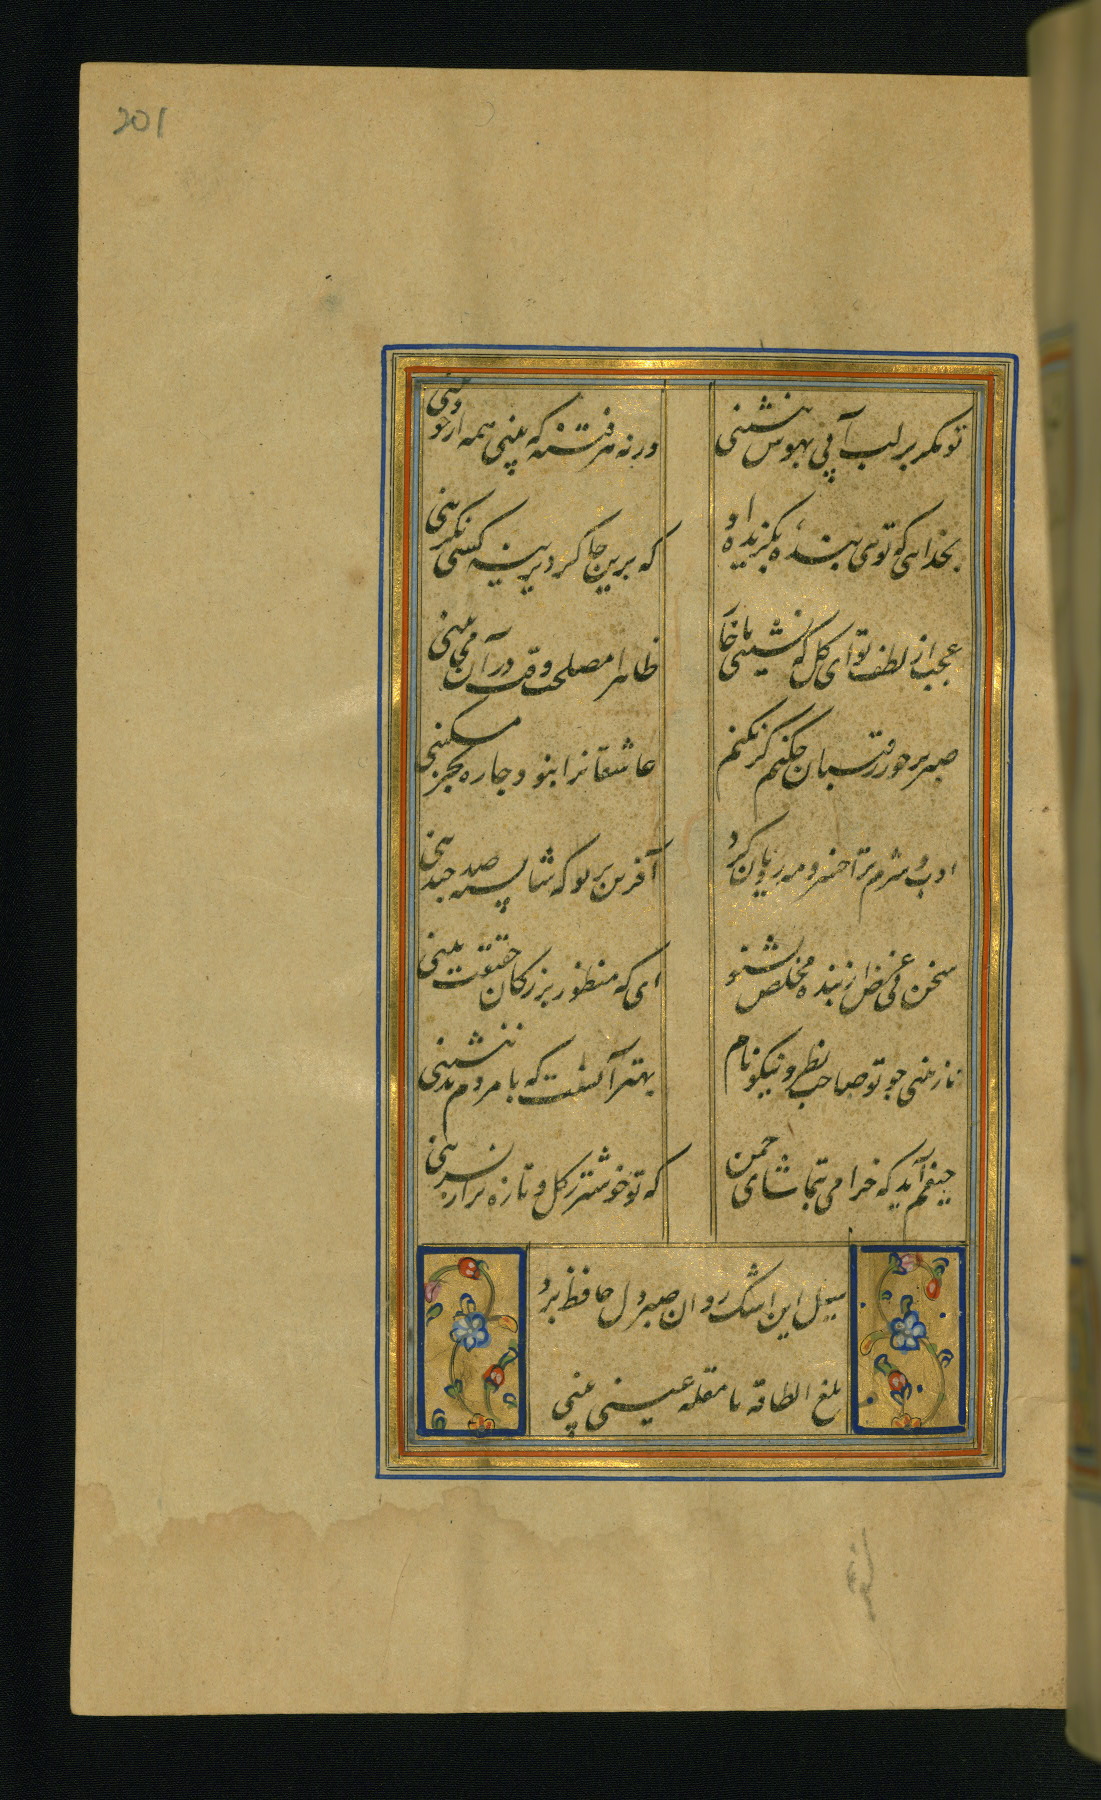 201
تو مکر بر لب آبی بهوس بنشینی
ورنه هر فتنه که بینی همه از خود بینی
بخدایی که توی بندهٔ بگزیده او
که برین چاکر دیرینه کسی نگزینی
عجب از لطف تو ای کل که نشینی با خار
ظاهرا مصلحت وقت در آن می بینی
صبر بر جور رقیبان چکنم گر نکنم
عاشقانرا نبود چاره بجز مسکینی
ادب و شرم ترا خسرو مه رویان کرد
آفرین بر تو که شایسته صد چندینی
سخن بی غرض از بنده مخلص بشنو
ای که منظور بزرکان حقیقت بینی
نازنینی چو تو صاحب نظر و نیکو نام
بهتر آنست که با مردم بد ننشینی
حیفم آید که خرامی بتماشای چمن
که تو خوشتر ز کل و تازه تر از نسرینی
سیل این اشک روان صبر دل حافظ برد
بلغ الطاقه یا مقلة عینی بینی